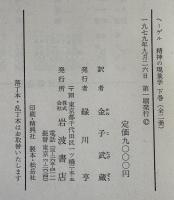 ヘーゲル 精神の現象学 下巻(全二冊)
一九七九年九月二六日 第一刷発行©
定価九〇〇〇円
訳者 金子武蔵
発行者 緑川亨
東京都千代田区一ツ橋
発行所 株式会社 岩波書店
電話
振替 東京
印刷・精興社 製本・松岳社
落丁本・乱丁本はお取替いたします